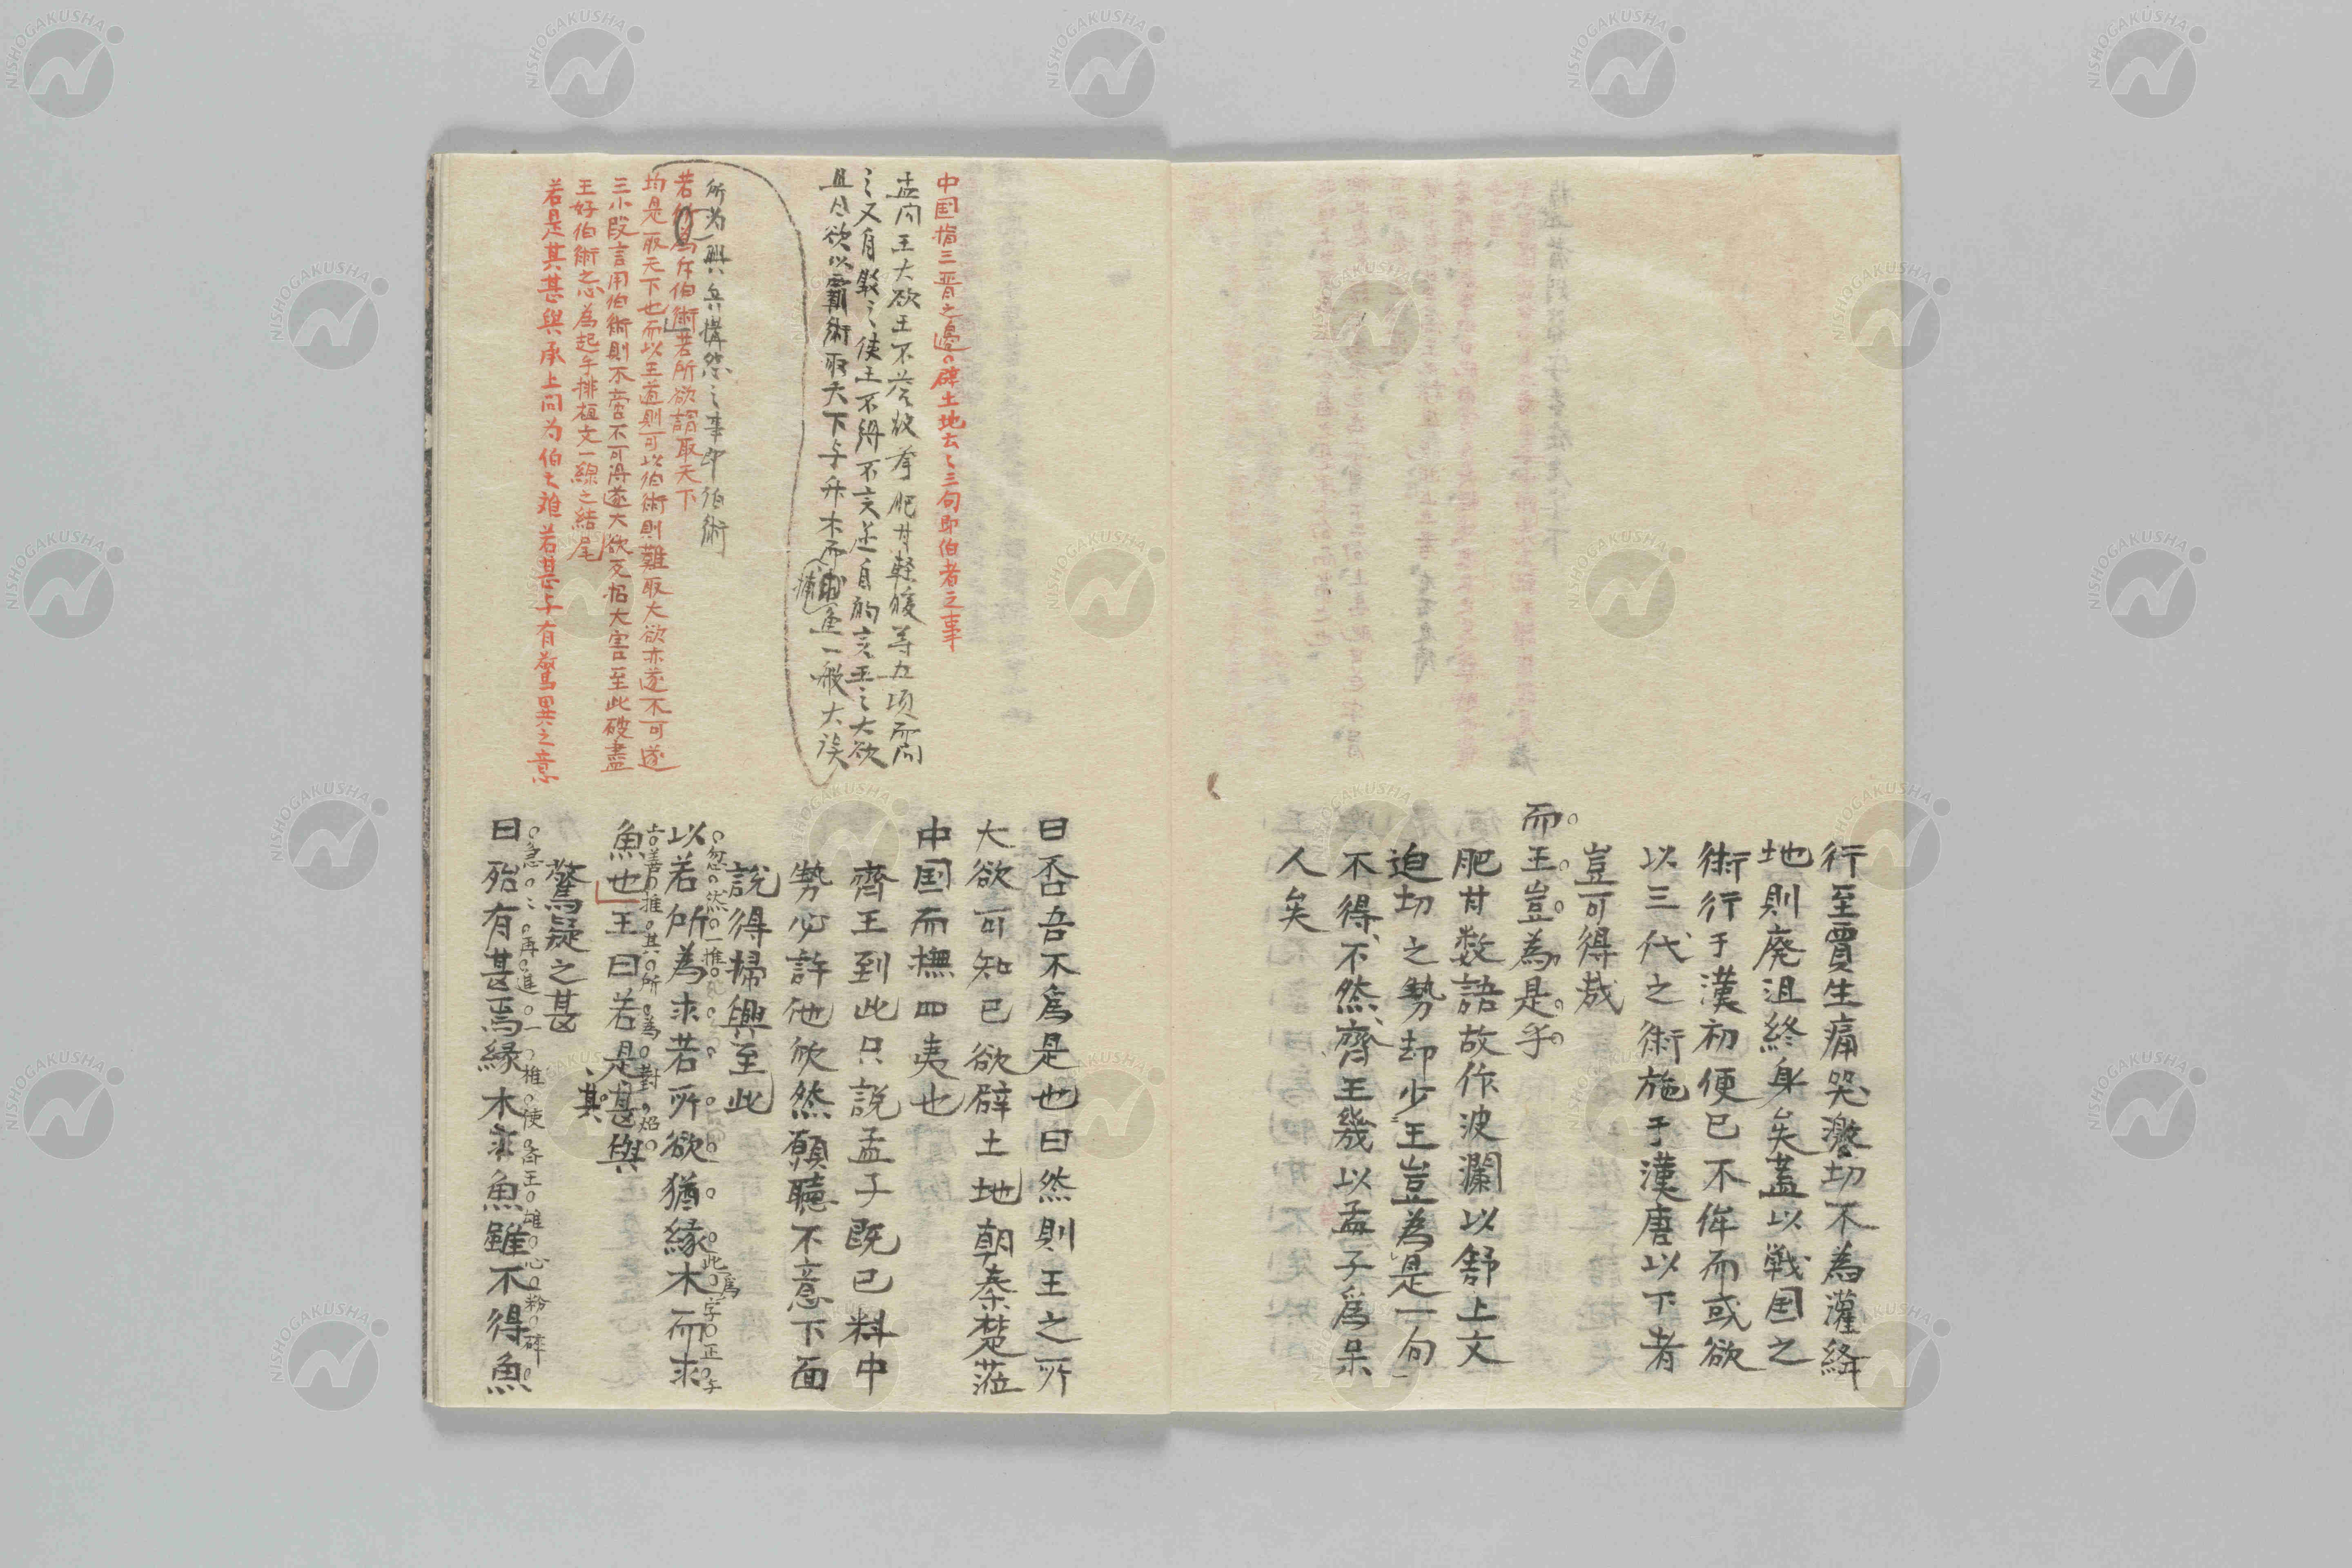 行至賈生痛哭激切不為灌絳
地則廃沮終身矣蓋以戦国之
術行于漢初便已不侔而或欲
以三代之術施于漢唐以下者
豈可得哉
而王豈為是乎
肥甘数語故作波瀾以舒上文
迫切之勢却少王豈為是一句
不得不然齊王幾以孟子爲呆
人矣
中国指三晋之邊辟土地云々三句即伯者之事
孟问王大欲王不答故挙肥甘軽煖等五项而问
且以欲以覇術取天下与升木而
捕
魚一般大误
所为興兵搆怨之事即伯術
若所為斥伯術若所欲謂取天下
均是取天下也而以王道則可以伯術則難取大欲亦遂不可遂
三小段言用伯術則不啻不可得遂大欲反招大害至此破盡
王好伯術之心為起手排桓文一線之結尾
若是其甚與承上问为伯之难若甚与有驚異之意
曰否吾不爲是也曰然則王之所
大欲可知已欲辟土地朝秦楚莅
中国而撫四夷也
齊王到此只説孟子既已料中
勢必許他欣然願聴不意下面
説得掃興至此
以若所為求若所欲猶緣木而求
此為字正与
上善推其所為對照
魚也王曰若是甚與
其
驚疑之甚
急々再進一推使斉王雄心粉碎
曰殆有甚焉緣木求魚雖不得魚
NISHOGAKUSHA